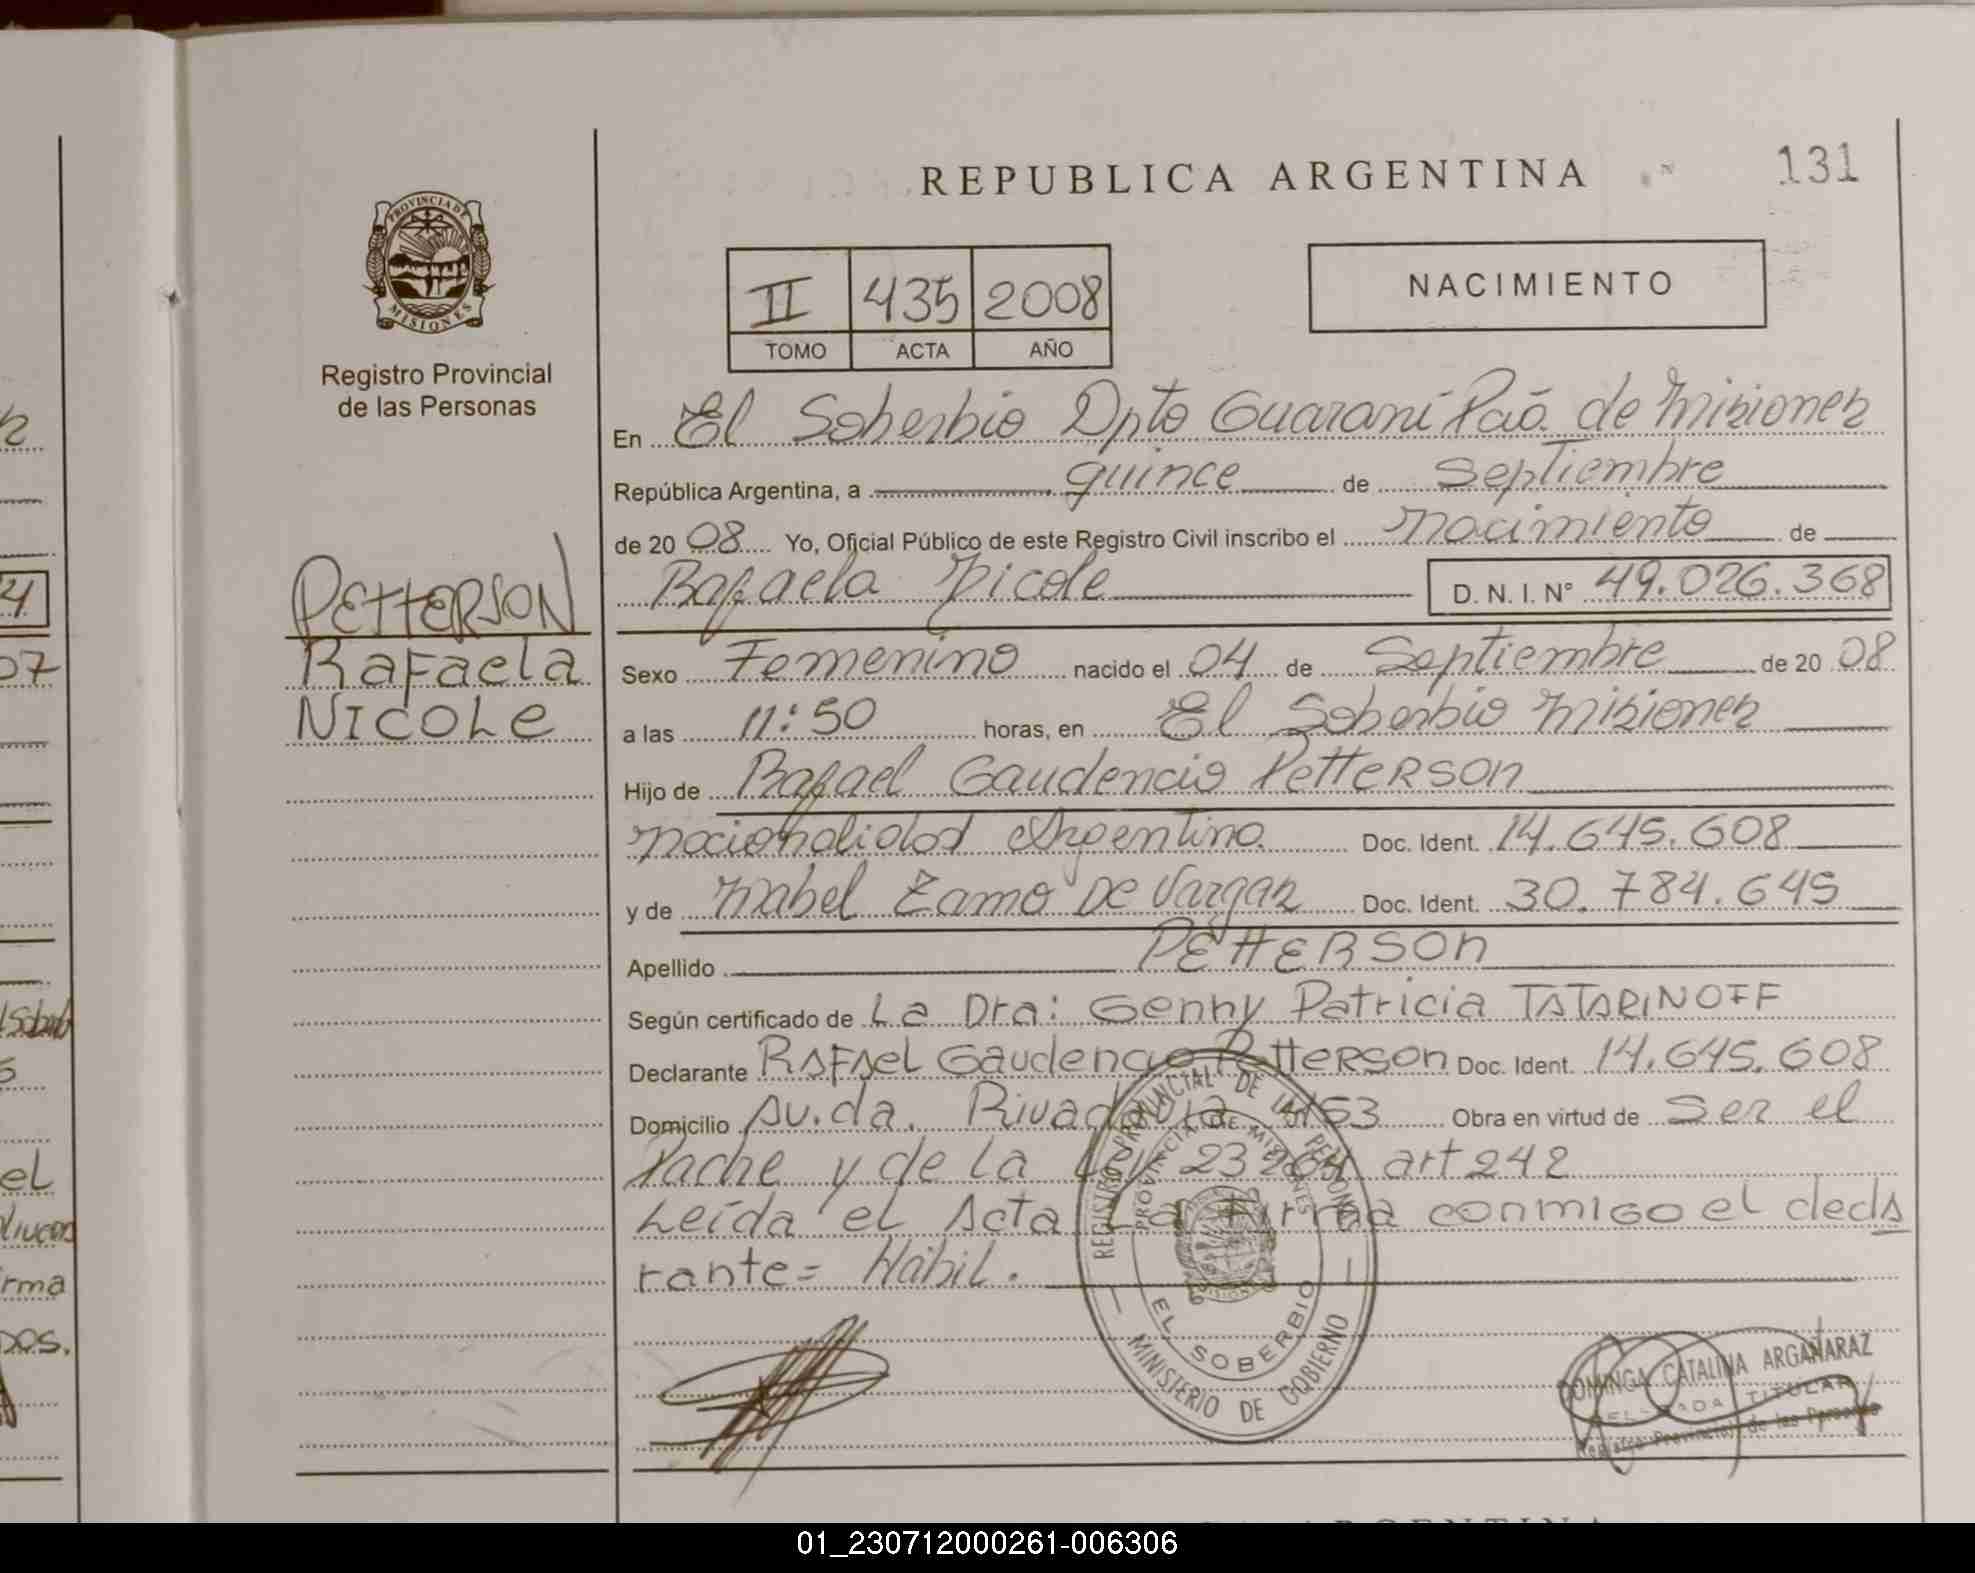 REPUBLICA ARGENTINA
131
PROVINCIA DE
MISIONES
Registro Provincial
de las Personas
II 435 2008
TOMO ACTA AÑO
NACIMIENTO
En El Soberbio Dpto Guaraní Pcia. de Misiones
República Argentina, a quince de Septiembre
de 2008 Yo, Oficial Público de este Registro Civil inscribo el Nacimiento de
Rafaela Nicole D. N. I. N° 49.026.368
PETTERSON
Rafaela
NICOLe
Sexo Femenino nacido el 04 de Septiembre de 2008
a las 11:50 horas, en El Soberbio Misiones
Hijo de Rafael Gaudencio PETTERSON
nacionalidad Argentina Doc. Ident. 14.645.608
y de Mabel Zamo De Vargas Doc. Ident. 30.784.645
Apellido PETTERSON
Según certificado de La Dra: Genny Patricia TATARINOFF
Declarante RAFAel Gaudencio PetteRson Doc. Ident. 14.645.608
Domicilio Av.da. Rivadavia 1153 Obra en virtud de Ser el
Padre y de la Ley 23264 art 242
Leída el Acta La Firma conmigo el decla
rante= Hábil.
REGISTRO PROVINCIAL DE LAS PERSONAS
PROVINCIA DE MISIONES
EL SOBERBIO
MINISTERIO DE GOBIERNO
DOMINGA CATALINA ARGAÑARAZ
DELEGADA TITULAR
Registro Provincial de las Personas
01_230712000261-006306